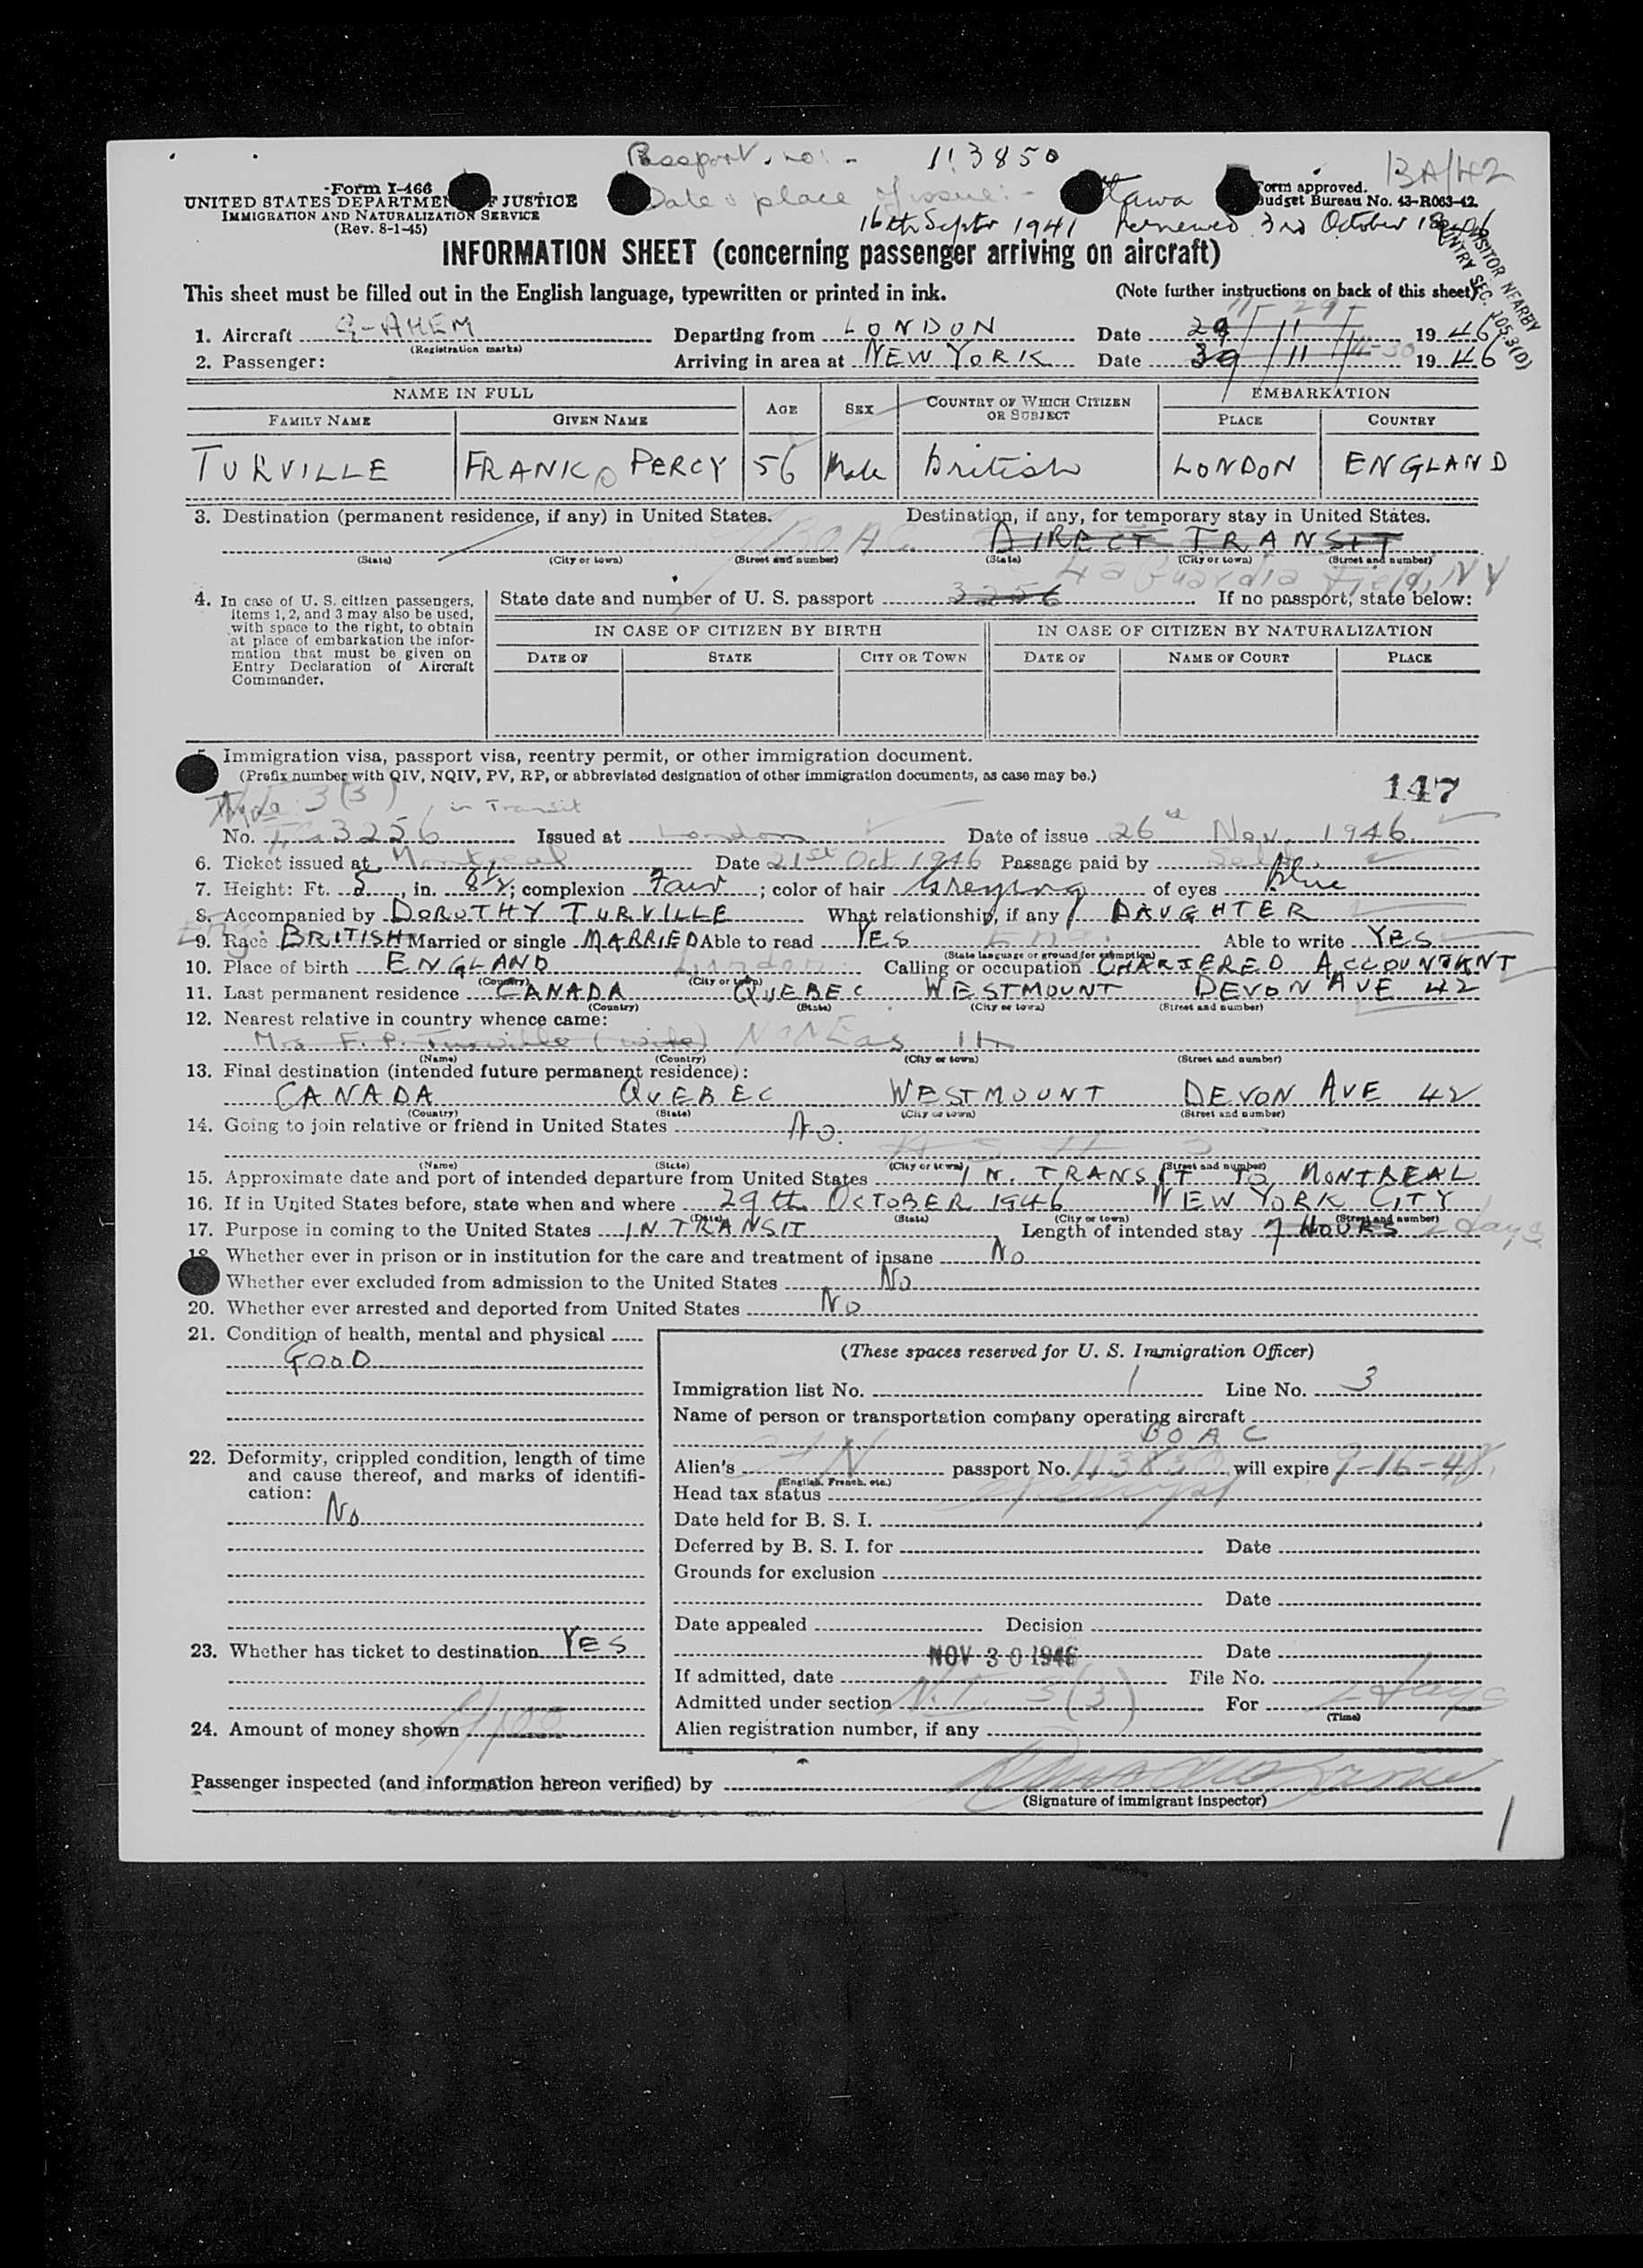 Passport no:- 113850
Form I-466
UNITED STATES DEPARTMENT OF JUSTICE
IMMIGRATION AND NATURALIZATION SERVICE
(Rev. 8-1-45)
Date & place of issue:- Ottawa
Form approved.
Budget Bureau No. 43-R063-42.
BA/42
16th Septr 1941 Renewed 3rd October
VISITOR NEARBY
COUNTRY SEC. 105.3(D)
INFORMATION SHEET (concerning passenger arriving on aircraft)
This sheet must be filled out in the English language, typewritten or printed in ink. (Note further instructions on back of this sheet)
11-29-
1. Aircraft G-AHEM Departing from LONDON Date 29/11/ 1946
(Registration marks)
2. Passenger: Arriving in area at NEW YORK Date 30/11/ 11-30 1946
NAME IN FULL AGE SEX COUNTRY OF WHICH CITIZEN OR SUBJECT EMBARKATION
FAMILY NAME GIVEN NAME PLACE COUNTRY
TURVILLE FRANK PERCY 56 Male British LONDON ENGLAND
3. Destination (permanent residence, if any) in United States. Destination, if any, for temporary stay in United States.
BOAC DIRECT TRANSIT
(State) (City or town) (Street and number) (State) (City or town) (Street and number)
La Guardia Field, NY
4. In case of U. S. citizen passengers, items 1, 2, and 3 may also be used, with space to the right, to obtain at place of embarkation the information that must be given on Entry Declaration of Aircraft Commander.
State date and number of U. S. passport 3256 If no passport, state below:
IN CASE OF CITIZEN BY BIRTH IN CASE OF CITIZEN BY NATURALIZATION
DATE OF STATE CITY OR TOWN DATE OF NAME OF COURT PLACE
5. Immigration visa, passport visa, reentry permit, or other immigration document.
(Prefix number with QIV, NQIV, PV, RP, or abbreviated designation of other immigration documents, as case may be.)
147
3(3) in Transit
No. 3256 Issued at London Date of issue 26th Nov. 1946.
6. Ticket issued at Montreal Date 21st Oct 1946 Passage paid by Self.
7. Height: Ft. 5, in. 8½; complexion Fair; color of hair Greying of eyes Blue
8. Accompanied by DOROTHY TURVILLE What relationship, if any DAUGHTER
Eng
9. Race BRITISH Married or single MARRIED Able to read YES Eng. Able to write YES
(State language or ground for exemption)
10. Place of birth ENGLAND London Calling or occupation CHARTERED ACCOUNTANT
(Country) (City or town)
11. Last permanent residence CANADA QUEBEC WESTMOUNT DEVON AVE 42
(Country) (State) (City or town) (Street and number)
12. Nearest relative in country whence came:
Mrs F. P. Turville (wife) NONE as 11
(Name) (Country) (City or town) (Street and number)
13. Final destination (intended future permanent residence):
CANADA QUEBEC WESTMOUNT DEVON AVE 42
(Country) (State) (City or town) (Street and number)
14. Going to join relative or friend in United States No.
(Name) (State) (City or town) (Street and number)
15. Approximate date and port of intended departure from United States IN TRANSIT TO MONTREAL
16. If in United States before, state when and where 29th OCTOBER 1946 NEW YORK CITY
(Date) (State) (City or town) (Street and number)
17. Purpose in coming to the United States IN TRANSIT Length of intended stay 7 HOURS days
18. Whether ever in prison or in institution for the care and treatment of insane No
Whether ever excluded from admission to the United States No
20. Whether ever arrested and deported from United States No
21. Condition of health, mental and physical
GOOD
22. Deformity, crippled condition, length of time and cause thereof, and marks of identification:
No
23. Whether has ticket to destination YES
24. Amount of money shown
(These spaces reserved for U. S. Immigration Officer)
Immigration list No. 1 Line No. 3
Name of person or transportation company operating aircraft
BOAC
Alien's passport No. 113850 will expire 9-16-48
(English, French, etc.)
Head tax status
Date held for B. S. I.
Deferred by B. S. I. for Date
Grounds for exclusion
Date
Date appealed Decision
NOV 30 1946 Date
If admitted, date File No.
Admitted under section 3(3) For days
(Time)
Alien registration number, if any
Passenger inspected (and information hereon verified) by
(Signature of immigrant inspector)
1